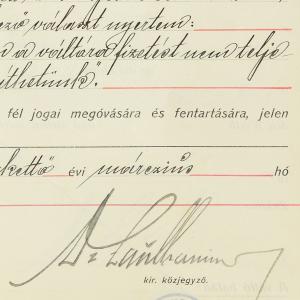 ező választ nyertem:
a váltóra fizetést nem telje-
síthetünk".
fél jogai megóvására és fentartására, jelen
kettő évi márczius hó
Dr
kir. közjegyző.